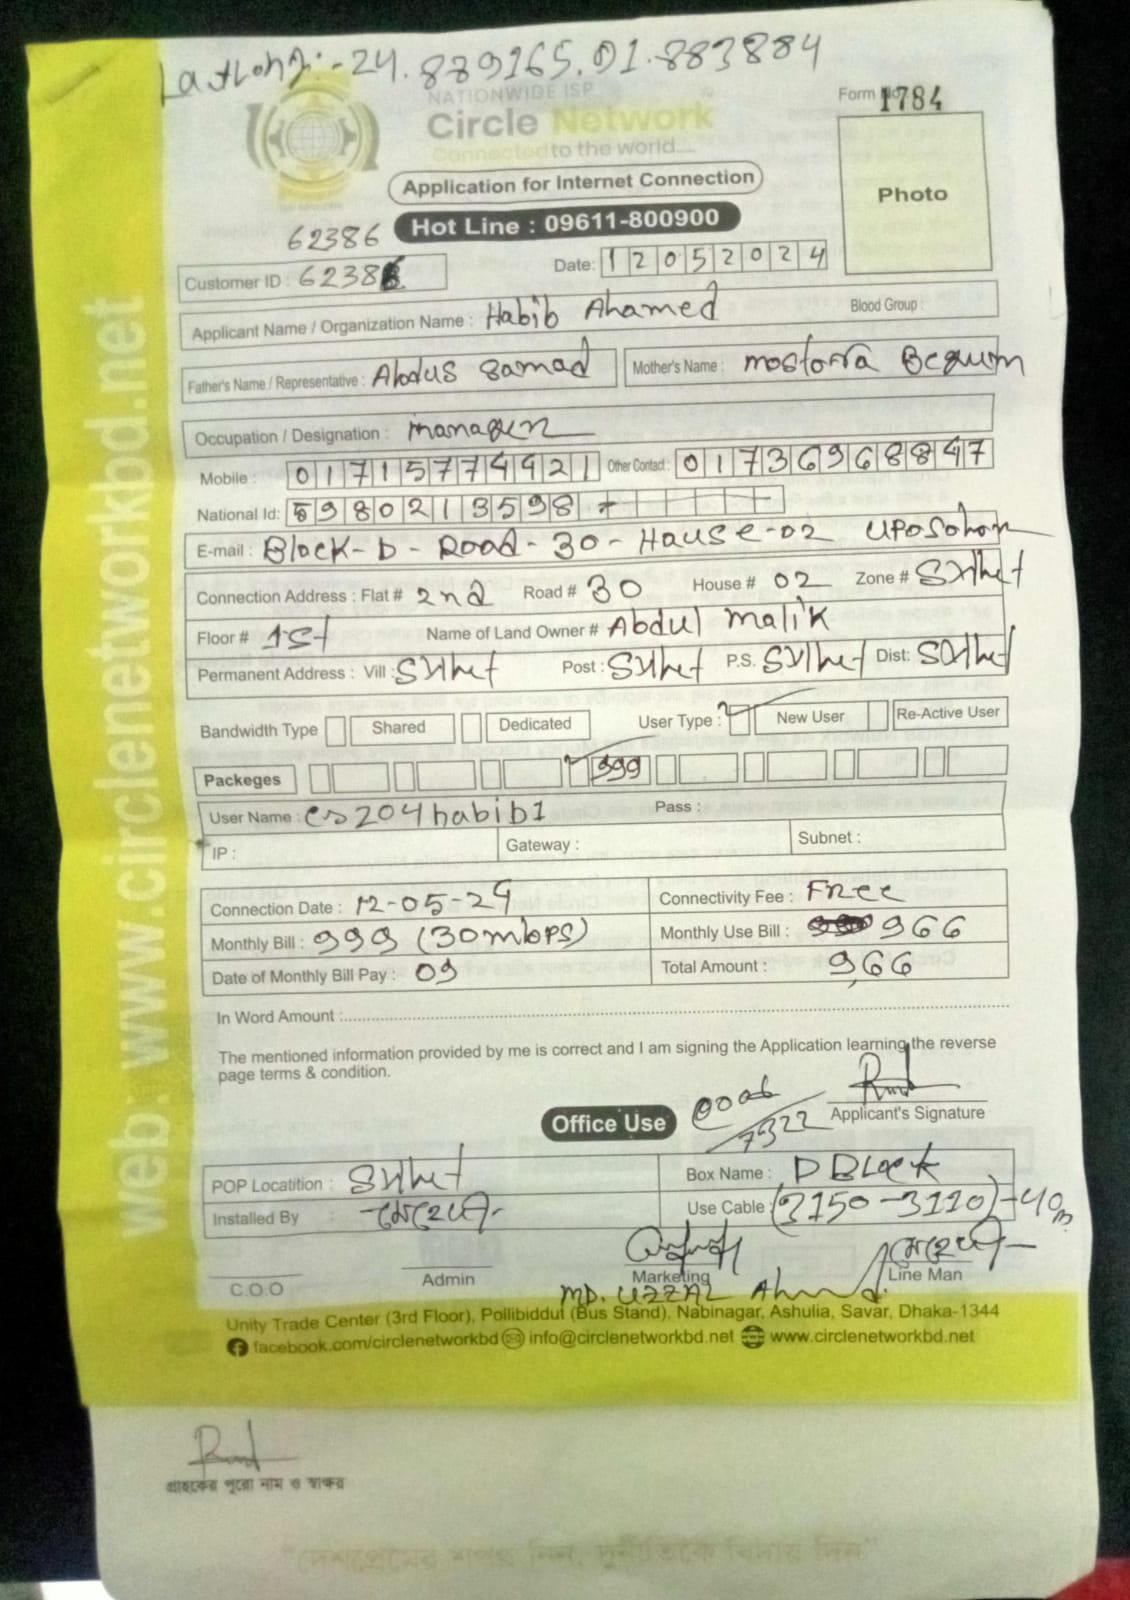 Lat Long:-24.889265,91.883884
NATIONWIDE ISP
Form No 1784
Circle Network
Connected to the world....
Photo
Application for Internet Connection
Hot Line : 09611-800900
62386
Customer ID : 62386
Date: 12052024
Applicant Name / Organization Name : Habib Ahamed Blood Group :
Father's Name / Representative : Abdus Samad Mother's Name : mostofa Begum
Occupation / Designation : manager
Mobile : 01715774421 Other Contact : 01736968847
National Id: 5980213598
E-mail : Block-D-Road-30-Hause-02 UPOSohor
Connection Address : Flat # 2nd Road # 30 House # 02 Zone # Sylhet
Floor # 1st Name of Land Owner # Abdul malik
Permanent Address : Vill : Sylhet Post : Sylhet P.S. Sylhet Dist: Sylhet
Bandwidth Type Shared Dedicated User Type : New User Re-Active User
Packeges 999
User Name : cs204habib1 Pass :
IP : Gateway : Subnet :
Connection Date : 12-05-24 Connectivity Fee : Free
Monthly Bill : 999 (30mbps) Monthly Use Bill : 966
Date of Monthly Bill Pay : 09 Total Amount : 966
In Word Amount :
The mentioned information provided by me is correct and I am signing the Application learning the reverse
page terms & condition.
Applicant's Signature
Office Use
7322
POP Locatition : Sylhet Box Name : D Block
Installed By : মেহেদী Use Cable : (3150-3110)-40m
C.O.O Admin Marketing Line Man মেহেদী
MD. UZZAL Ahmed
Unity Trade Center (3rd Floor), Pollibiddut (Bus Stand), Nabinagar, Ashulia, Savar, Dhaka-1344
facebook.com/circlenetworkbd info@circlenetworkbd.net www.circlenetworkbd.net
web: www.circlenetworkbd.net
গ্রাহকের পুরো নাম ও স্বাক্ষর
"দেশপ্রেমের শপথ নিন, দুর্নীতিকে বিদায় দিন"